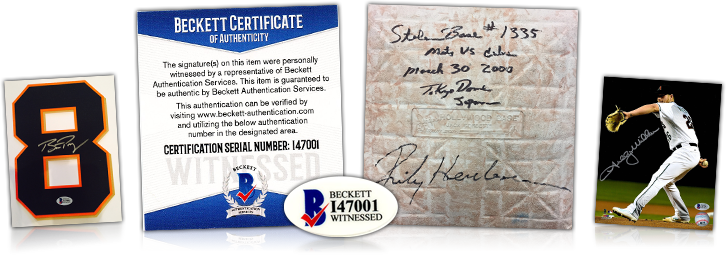 8
BECKETT CERTIFICATE
OF AUTHENTICITY
The signature(s) on this item were personally
witnessed by a representative of Beckett
Authentication Services. This item is guaranteed to
be authentic by Beckett Authentication Services.
This authentication can be verified by
visiting www.beckett-authentication.com
and utilizing the below authentication
number in the designated area.
CERTIFICATION SERIAL NUMBER: I47001
WITNESSED
BECKETT
B
B
BECKETT
I47001
WITNESSED
Stolen Base #1335
Mets VS Cubs
March 30 2000
Tokyo Dome
Japan
Rickey Henderson
2